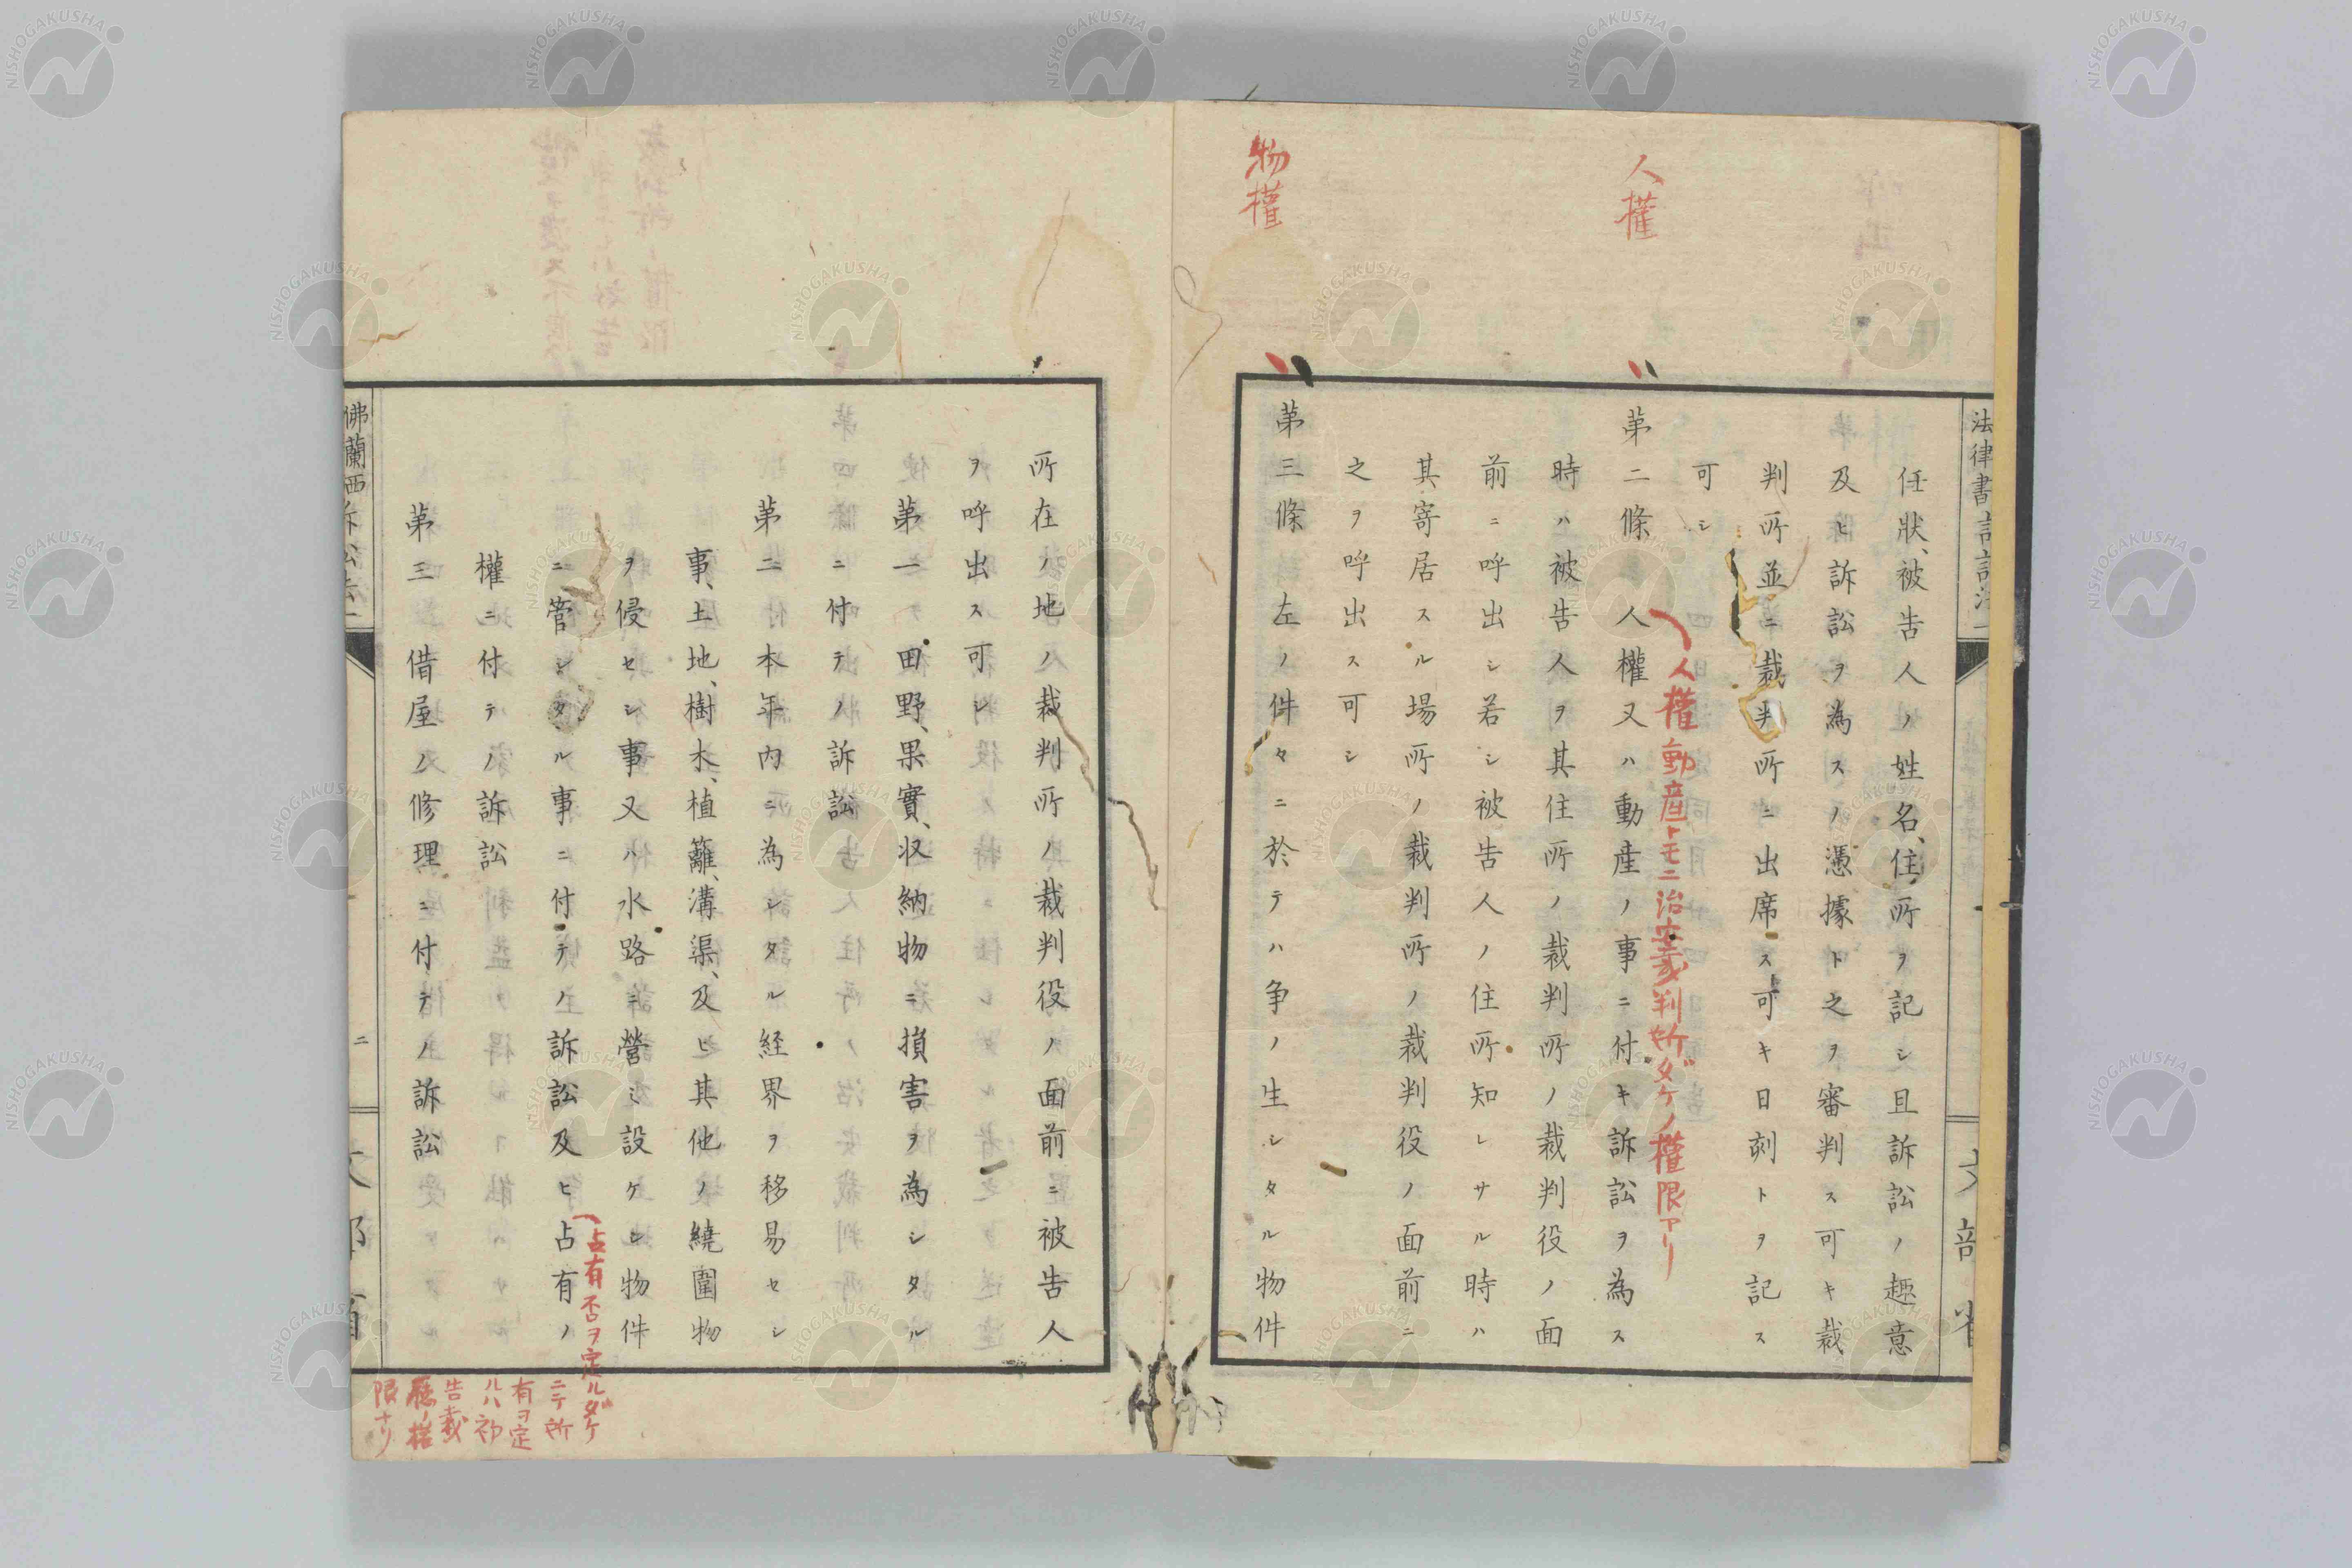 人權
物權
任狀、被告人ノ姓名、住所ヲ記シ且訴訟ノ趣意
及ヒ訴訟ヲ為スノ憑據ト之ヲ審判ス可キ裁
判所並ニ裁判所ニ出席ス可キ日刻トヲ記ス
可シ
人權動産トモニ治安裁判所ダケノ權限アリ
第二條 人權又ハ動産ノ事ニ付キ訴訟ヲ為ス
時ハ被告人ヲ其住所ノ裁判所ノ裁判役ノ面
前ニ呼出シ若シ被告人ノ住所知レサル時ハ
其寄居スル場所ノ裁判所ノ裁判役ノ面前ニ
之ヲ呼出ス可シ
第三條 左ノ件々ニ於テハ争ノ生シタル物件
所在ノ地ノ裁判所ノ裁判役ノ面前ニ被告人
ヲ呼出ス可シ
第一 田野、果實、収納物ニ損害ヲ為シタル
ニ付テノ訴訟
第二 本年内ニ為シタル経界ヲ移易セシ
事、土地、樹木、植籬、溝渠、及ヒ其他ノ繞圍物
ヲ侵セシ事又ハ水路ニ營ミ設ケシ物件
ニ管シタル事ニ付テノ訴訟及ヒ占有ノ
占有否ヲ定ルダケ
ニテ所
有ヲ定
ルハ初
告裁
廳ノ權
限ナリ
權ニ付テノ訴訟
第三 借屋ノ修理ニ付テノ訴訟
佛蘭西訴訟法一
二
文部省
NISHOGAKUSHA